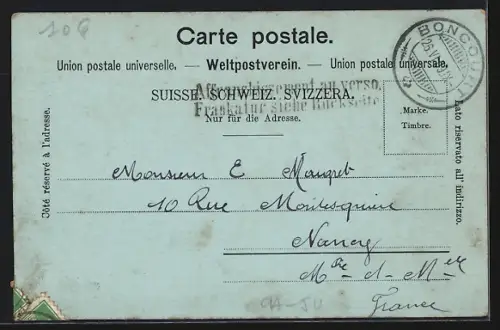 106
Carte postale.
Union postale universelle. — Weltpostverein. — Union postale universale.
Affranchissement au verso.
SUISSE. SCHWEIZ. SVIZZERA.
Frankatur siehe Rückseite
Nur für die Adresse.
BONCOURT
Marke.
Timbre.
Côté réservé à l'adresse.
Lato riservato all' indirizzo.
Monsieur E
10 Rue Montesquieu
Nancy
Mthe - et - Mlle
France